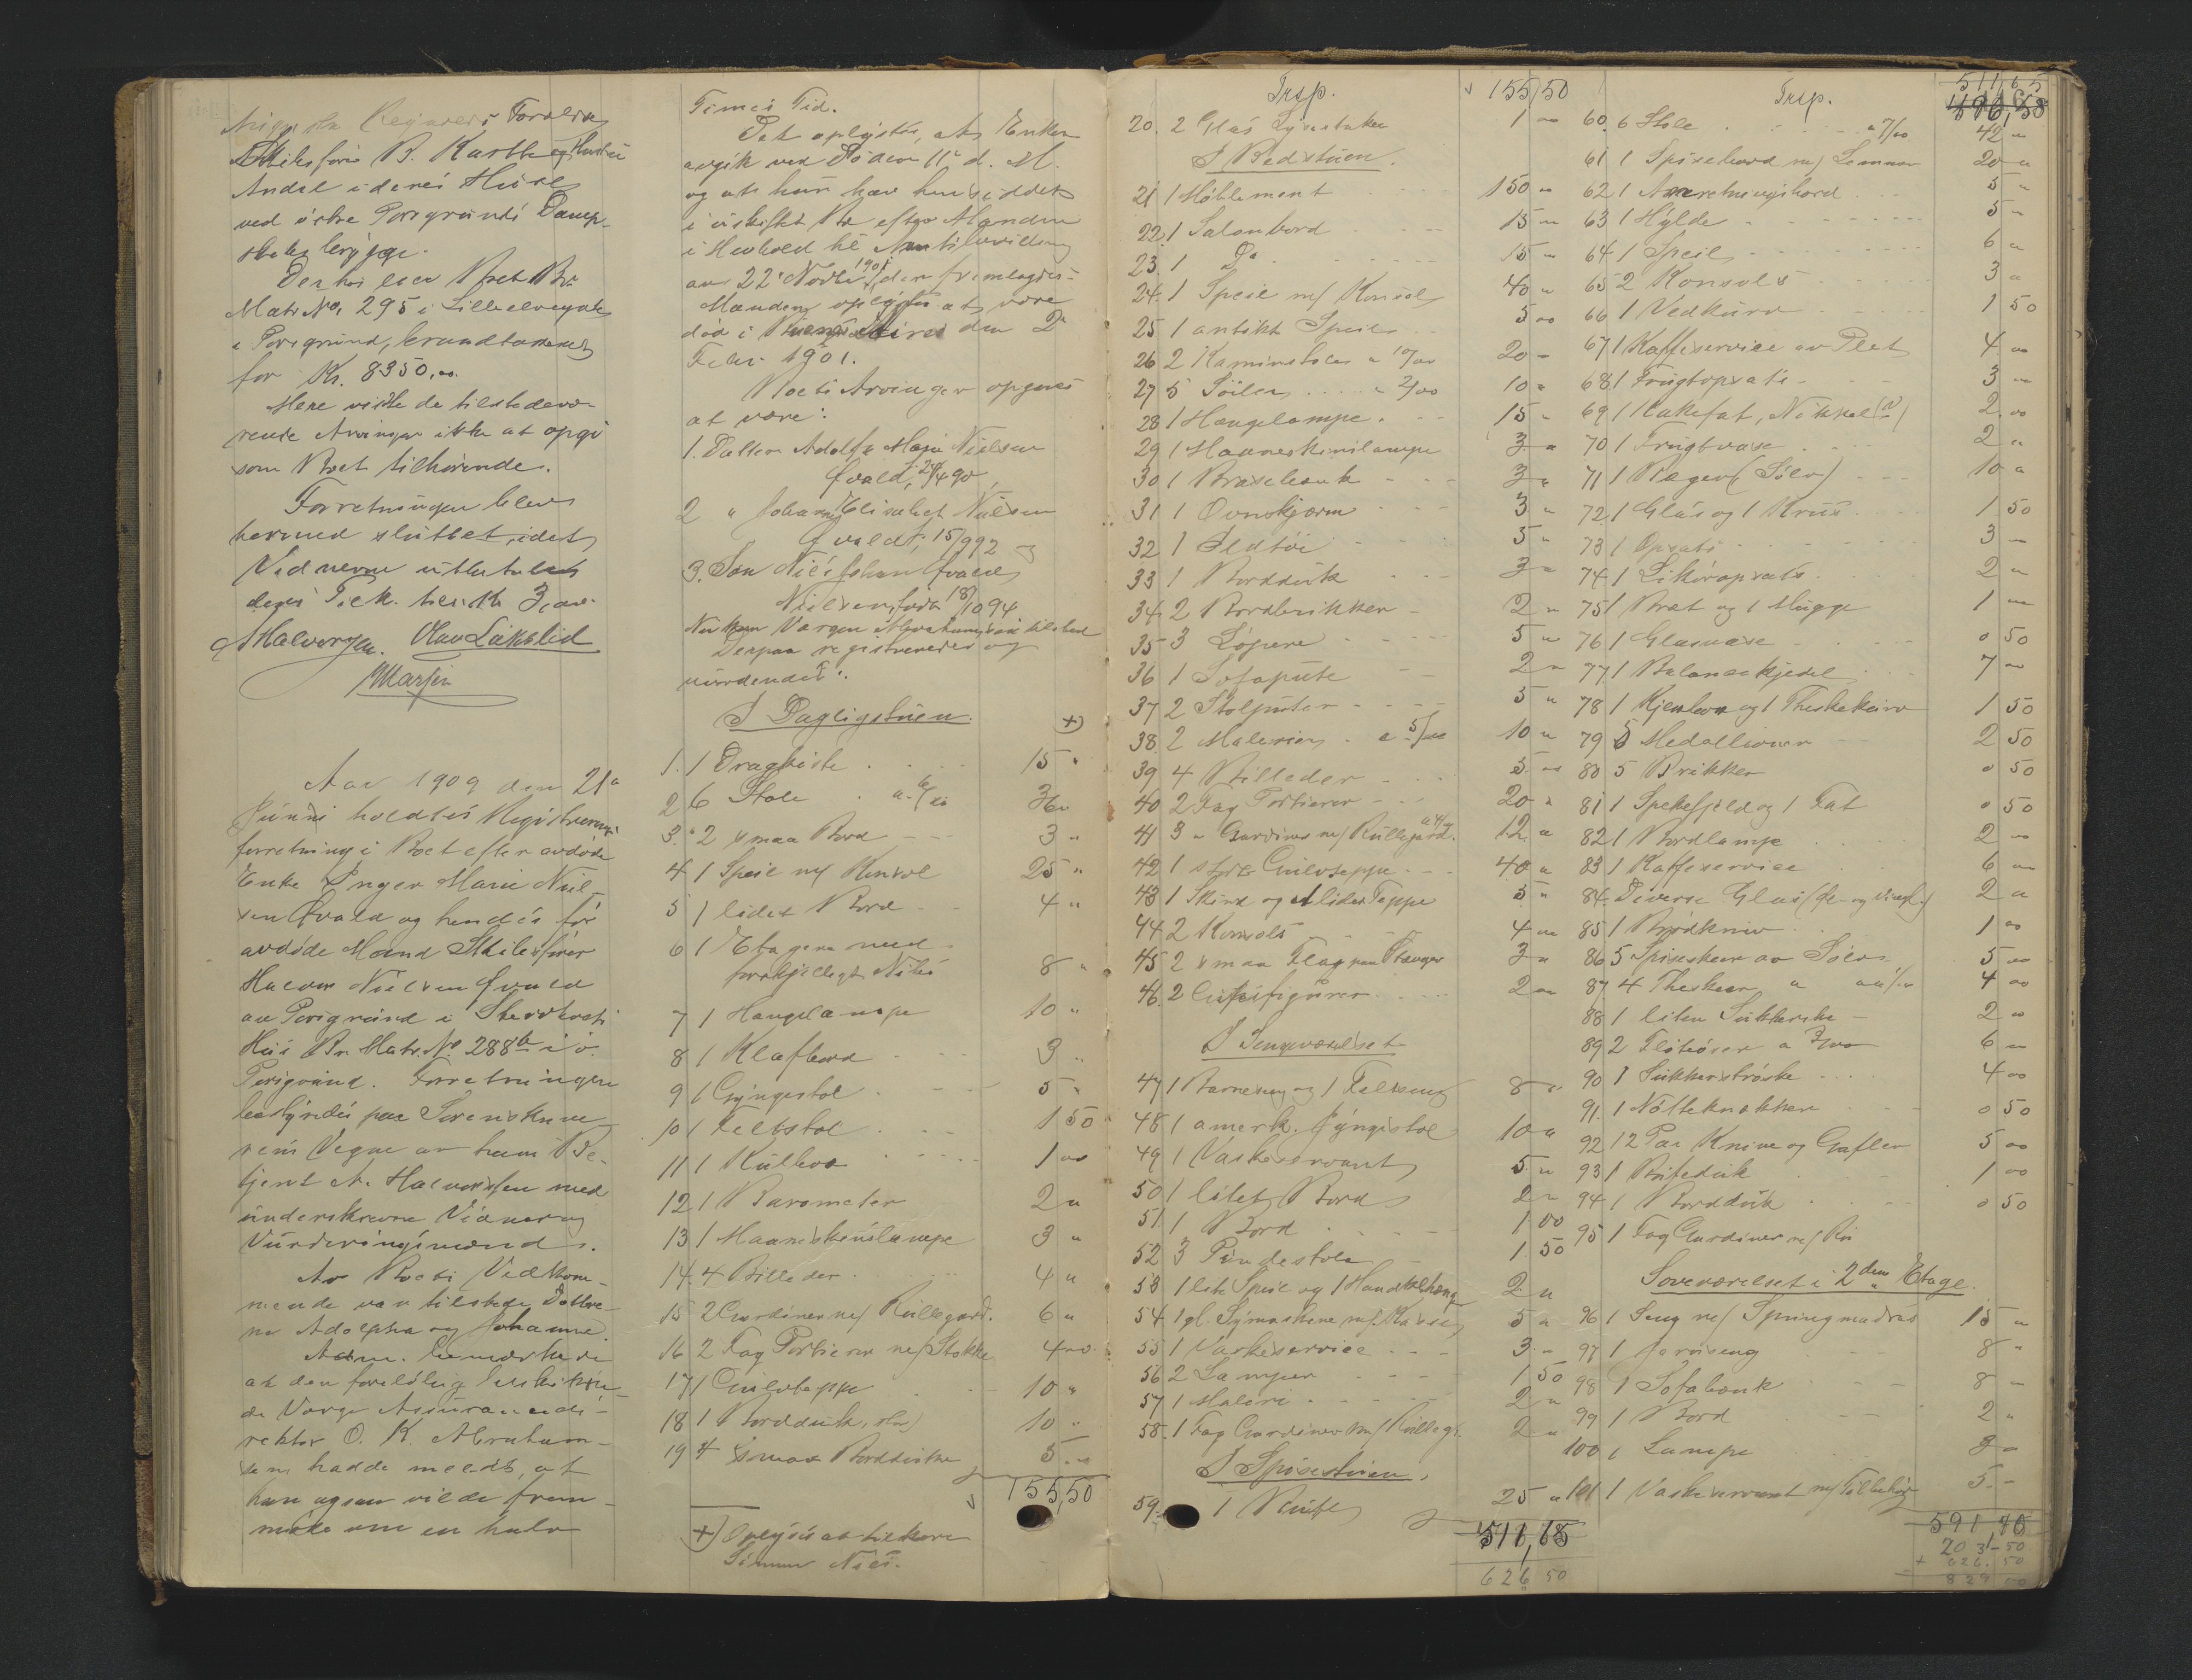 Skibsfører B. Karstb og Hustrus
Andel i deres Huse
ved østre Porsgrunds Damp-
skibsbrygge.
Derhos eier Boet Br
Matr No. 295 i Lilleelvegate
i Porsgrund, brandtaxeret
for Kr. 8350,00.
Mere viste de tilstedevæ-
rende Arvinger ikke at opgi
som Boet tilhørende.
Forretningen blev
hermed sluttet, idet
Vidnerne uttalte
deres Tilk. til Kr 3,00.
A Halvorsen. Olav Lükslid
Aar 1909 den 21a
Juni holdtes Registrerings
forretning i Boet efter avdøde
Enke Inger Marie Niel-
sen Qvald og hendes før
avdøde Mand Skibsfører
Halvor Nielsen Qvald
av Porsgrund i Sterbboets
Hus Br. Matr. No 288b i ø.
Porsgrund. Forretningen
bestyredes paa Sorenskrive-
rens Vegne av hans Be-
tjent A. Halvorsen med
underskrevne Vidner og
Vurderingsmænd.
Av Boets Vedkom-
mende var tilstede Døttre-
ne Adolpha og Johanne.
Adm. bemærkede
at den foreløbig beskikke-
de Verge Assurancedi-
rektør O. K. Abraham-
sen hadde meldt, at
han ogsaa vilde frem-
møte om en halv
Times Tid.
Det oplystes, at Enken
avgik ved Døden 11te d. M.
og at hun har hensiddet
i uskiftet Bo efter Manden
i Henhold til Amtsbevilling
av 22de Novbr 1901, der fremlagdes.
Manden oplystes at være
død i Buenos Aires den 2de
Febr. 1901.
Boets Arvinger opgaves
at være:
1. Datter Adolfa Marie Nielsen
Qvald, f. 24/4 90,
2 " Johanne Elisabet Nielsen
Qvald f. 15/9 92 og
3. Søn Nils Johan Qvald
Nielsen, født 18/10 94
Nu kom Vergen Abrahamsen tilstede
Derpaa registreredes og
vurderedes:
I Dagligstuen. +)
1. 1 Dragkiste 15 "
2 6 Stole a 6/00 36 "
3. 2 smaa Bord 3 "
4 1 Speil m/ Konsol 25 "
5 1 lidet Bord 4 "
6 1 Etagere med
forskjelligt Nips 8 "
7 1 Hængelampe 10 "
8 1 Klafbord 3 "
9 1 Gyngestol 5 "
10 1 Feltstol 1 50
11 1 Kulbox 1 00
12 1 Barometer 2 "
13 1 Maaneskinslampe 3 "
14. 4 Billeder 4 "
15 2 Gardiner m/ Rullegard. 6 "
16 2 Fag Portierer m/ Stokke 4 00
17 1 Gulvteppe 10 "
18 1 Bordduk, 10 "
19 4 smaa Bordduke 5 "
155,50
+) Oplyses at tilhøre
Sønnen Nils.
Trsp. 155,50
20. 2 Glas Lysestaker 1 00
I Bedstuen.
21 1 Møblement 150 "
22 1 Salonbord 15 "
23. 1 Do 15 "
24. 1 Speil m/ Konsol 40 "
25 1 antikt Speil 5 00
26 2 Kaminstoler a 10/00 20 "
27 5 Søiler a 2/00 10 "
28 1 Hængelampe. 15 "
29 1 Maaneskinslampe 3 "
30 1 Braxebænk 3 "
31 1 Ovnskjærm 3 "
32 1 Ildtøi 5 "
33 1 Bordduk 3 "
34 2 Bordbrikker 2 "
35 3 Løpere 5 "
36 1 Sofapute 2 "
37 2 Stolputer 5 "
38 2 Malerier a 5/00 10 "
39 4 Billeder 5 00
40 2 Fag Portierer 20 "
41 3 " Gardiner m/ Rullegard. a 4/00 12 "
42 1 stort Gulvteppe 40 "
43 1 Skind og 1 lidet Teppe 5 "
44 2 Konsols 4 00
45 2 smaa Flag paa Stænger 3 "
46. 2 Gipsfigurer 2 00
I Sengeværelset
47 1 Barneseng og 1 Feltseng 8 "
48 1 amerk. Gyngestol 10 "
49 1 Vaskeservant 5 "
50 1 litet Bord 2 "
51 1 Bord 1 00
52 3 Pindestole 1 50
53 1 lite Speil og 1 Haandklæhæng 2 "
54 1 gl. Symaskine m/ Kasse 5 "
55 1 Vaskeservice 3 "
56 2 Lamper 1 50
57 1 Maleri 2 "
58. 1 Fag Gardiner m/ Rullegr. 2 "
I Spisestuen.
59. 1 Buffet 25 "
511,65
626 50
Trsp. 511,65
60. 6 Stole a 7/00 42 "
61 1 Spisebord m/ Lemmer 20 "
62 1 Anretningsbord 5 "
63 1 Hylde 5 "
64 1 Speil 6 "
65 2 Konsols 3 "
66 1 Vedkurv 1 50
67 1 Kaffeservice av Plet 4 00
68 1 Frugtopsats 3 00
69 1 Kakefat, Nikkel (?) 2.00
70 1 Frugtvase 2 "
71 1 Bæger (Sølv) 10 "
72 1 Glas og 1 Krus 1 50
73 1 Opsats 3 "
74 1 Likøropsats 2 "
75 1 Bret og 1 Mugge 1 "
76 1 Glasvase 0 50
77 1 Balancekjedel 7 00
78 1 Kjenlever og 1 Theskekurv 1 50
79 5 Medalleoner 2 50
80 5 Brikker 0 50
81 1 Spekefjæl og 1 Fat 0 50
82 1 Bordlampe 2 00
83 1 Kaffeservice 6 00
84 Diverse Glas (Øl- og Vingl.) 2 "
85 1 Brødkniv 1 00
86 5 Spiseskeer av Sølv 5 00
87 4 Theskeer " a 1/00 4 00
88 1 liten Sukkerske 2 00
89 2 Fløteøser a 3/00 6 "
90 1 Sukkerstrøske 4 00
91. 1 Nøtteknækker 0 50
92 12 Par Knive og Gafler 5 00
93 1 Bufeduk 1 00
94 1 Bordduk 0 50
95 1 Fag Gardiner m/
Soveværelset i 2den Etage.
96 1 Seng m/ Springmadras 15 "
97 1 Jernseng 8 "
98 1 Sofabænk 8 "
99 1 Bord 2 "
100 1 Lampe 3 "
101 1 Vaskeservant m/ Tilbehør 5 -
591 40
203 50
+ 626 50
829 00